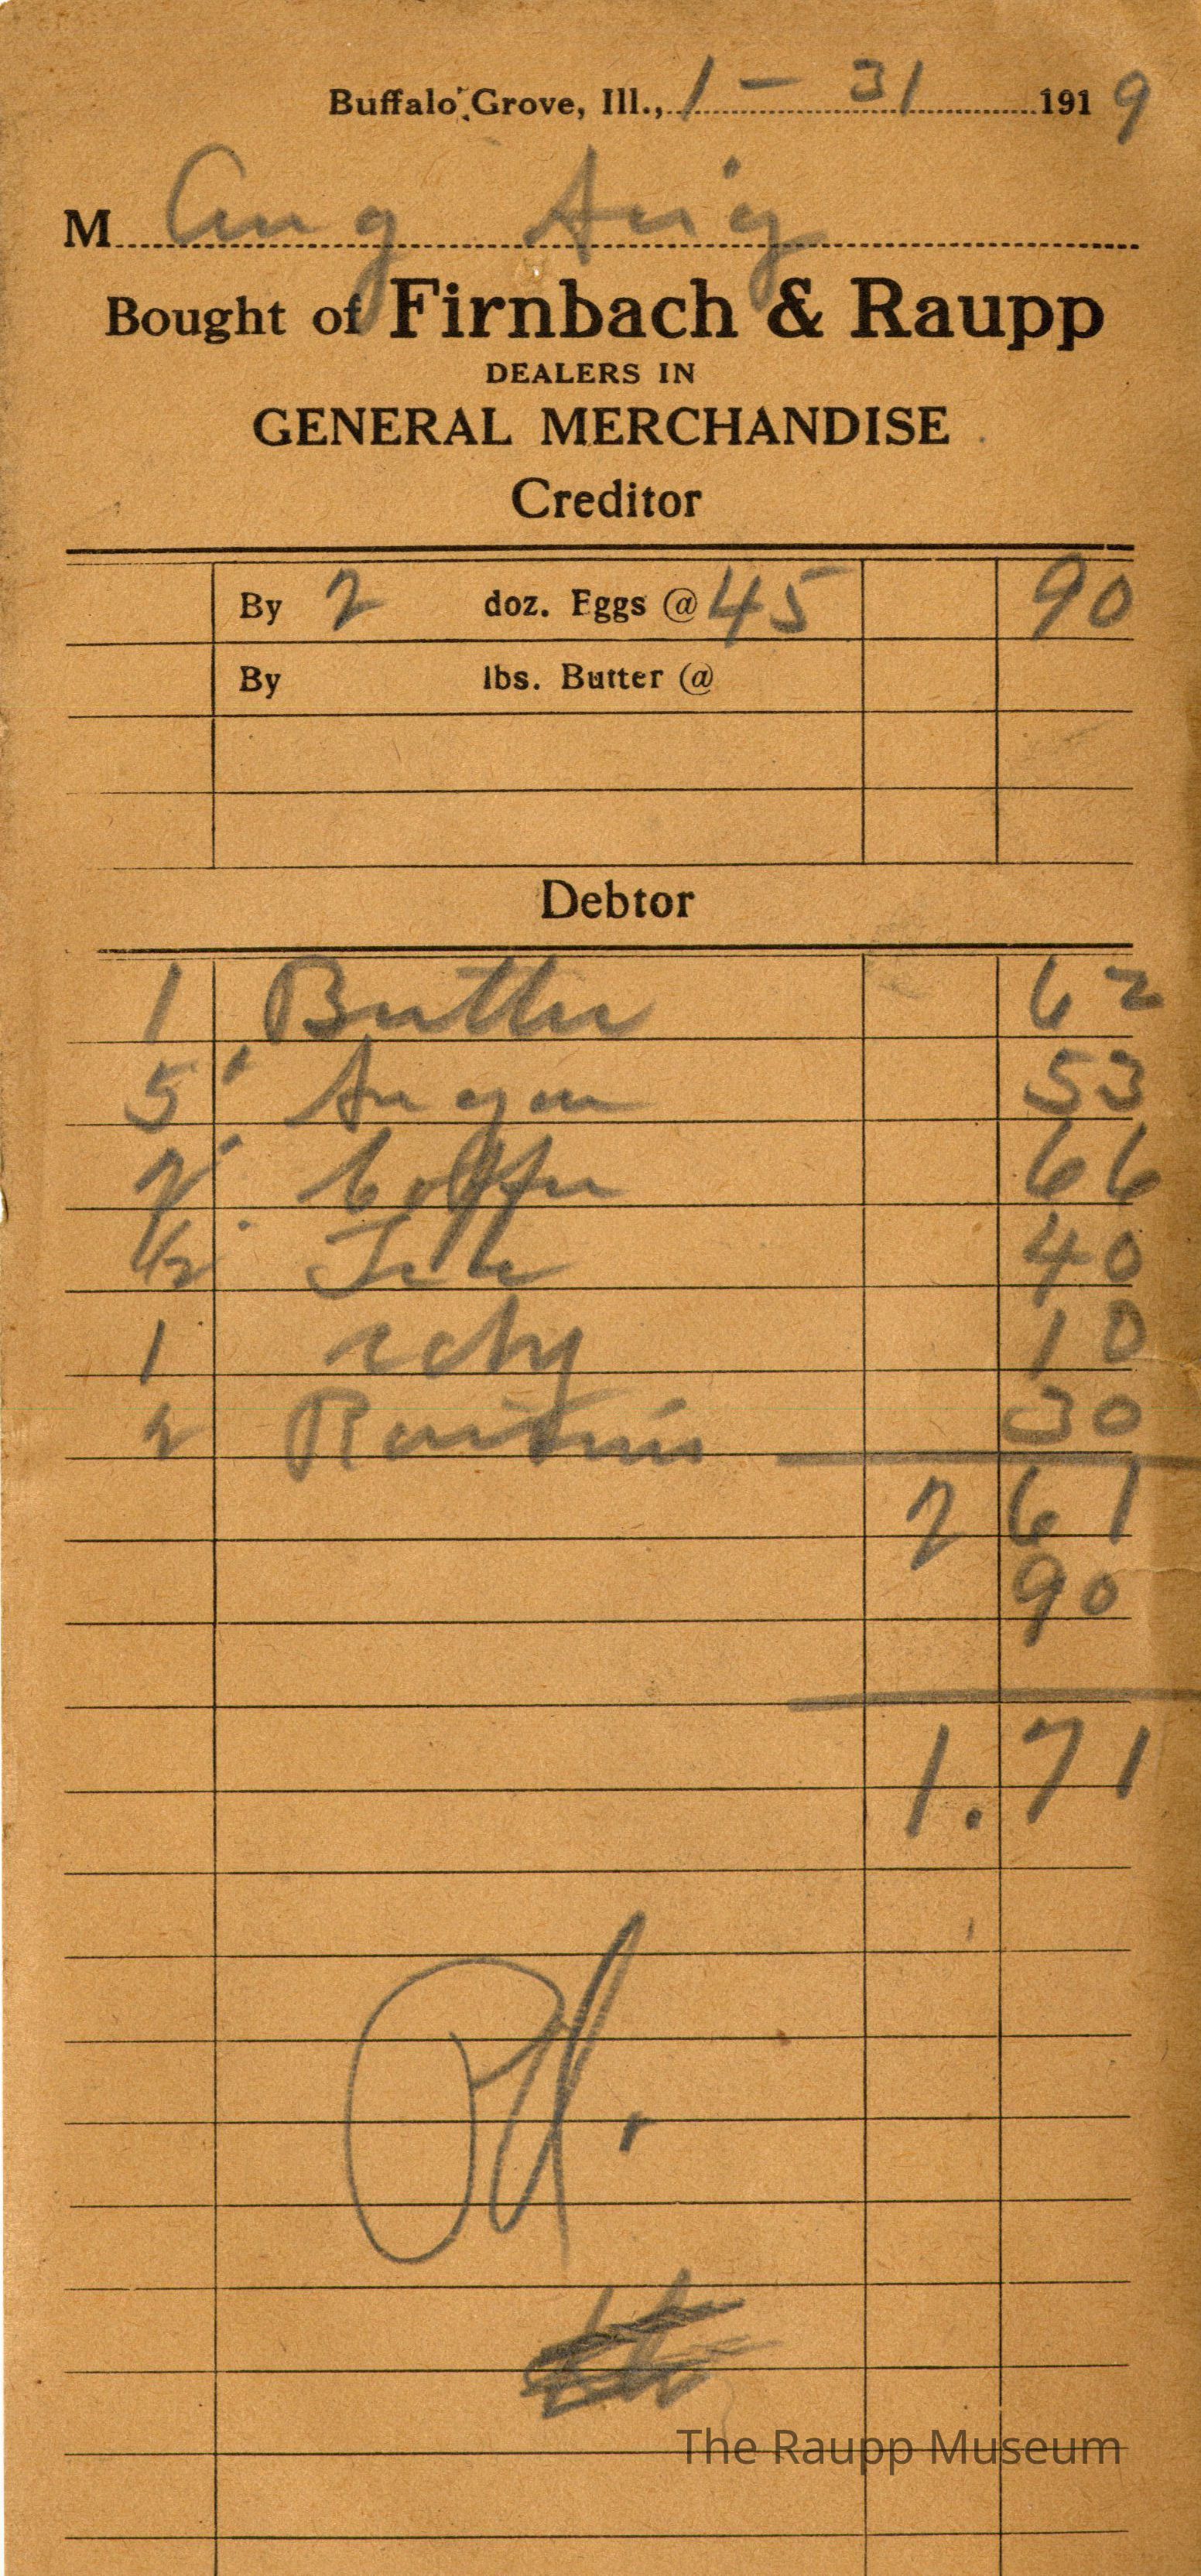 Buffalo Grove, Ill., 1 - 31 1919
M Aug
Bought of Firnbach & Raupp
DEALERS IN
GENERAL MERCHANDISE
Creditor
By 2 doz. Eggs @ 45 90
By lbs. Butter @
Debtor
1 Butter 62
5 Sugar 53
2 Coffee 66
1/2 40
1 10
2 30
2 61
90
1.71
Pd.
The Raupp Museum